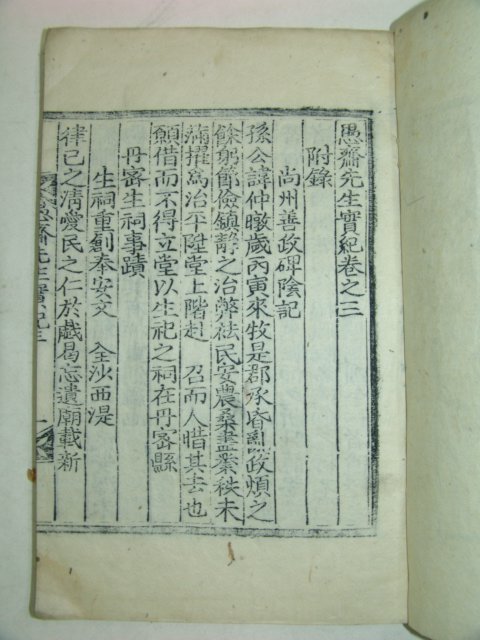 愚齋先生實紀卷之三
附錄
尚州善政碑陰記
孫公諱仲暾歲丙寅來牧是郡承昏亂政煩之
餘躬節儉鎮靜之治弊祛民安農桑盡業秩未
滿擢爲治平陞堂上階赴 召而人惜其去也
願借而不得立堂以生祀之祠在丹密縣
丹密生祠事蹟
生祠重創奉安文 全沙西湜
律己之淸愛民之仁於戲曷忘遺廟載新
愚齋先生實紀 三